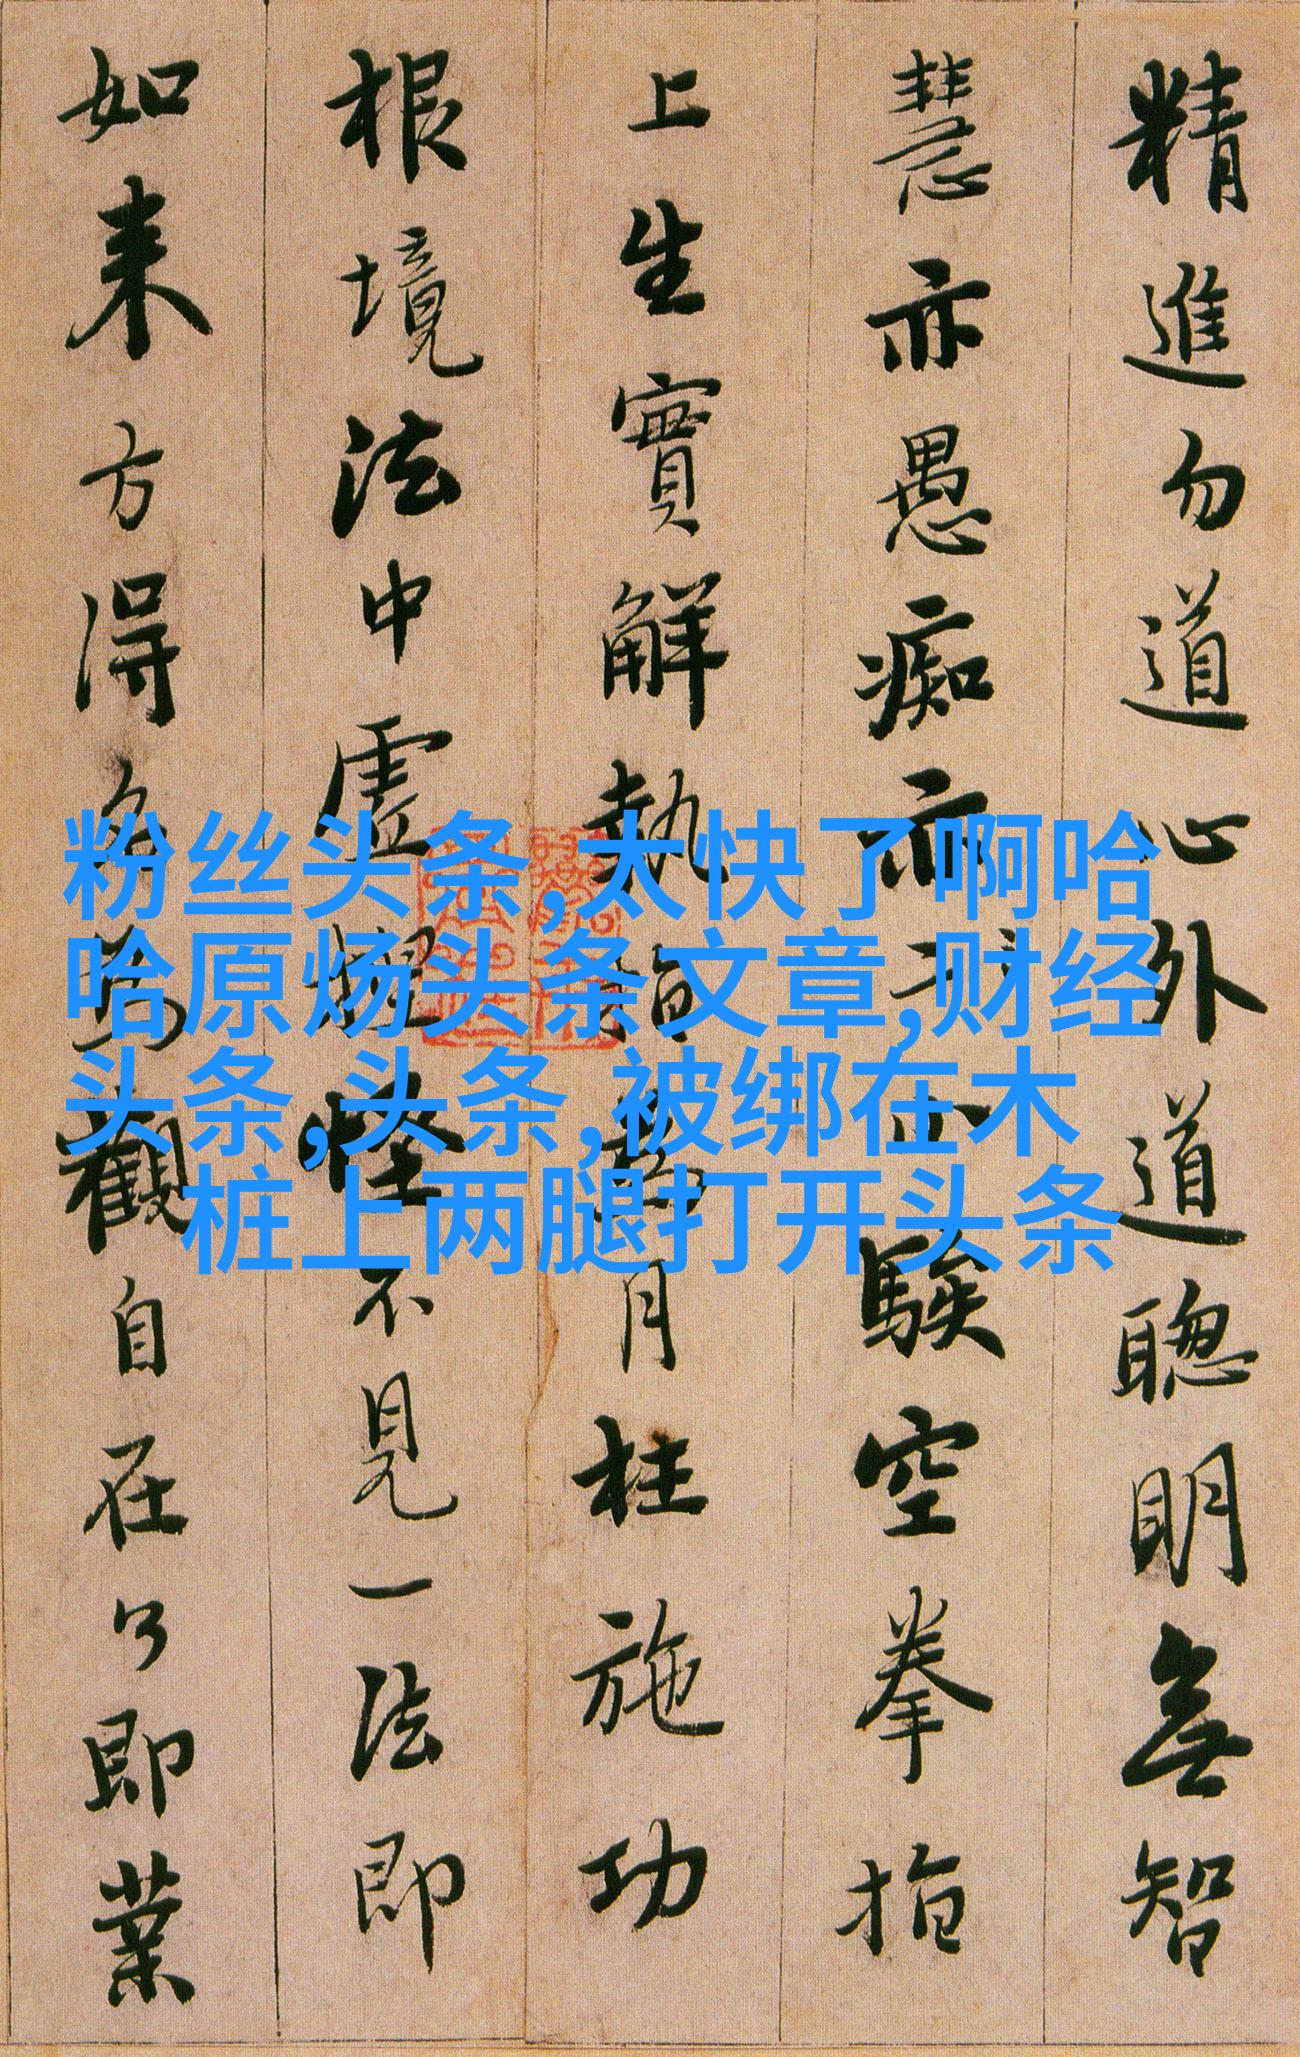 精進勿道心外道聰明無智
慧亦愚痴亦小騃空拳指
上生實解執指為月枉施功
根境法中虛捏怪不見一法即
如来方得名為觀自在了即業
粉丝头条,太快了啊哈
哈原炀头条文章,财经
头条,头条,被绑在木
桩上两腿打开头条